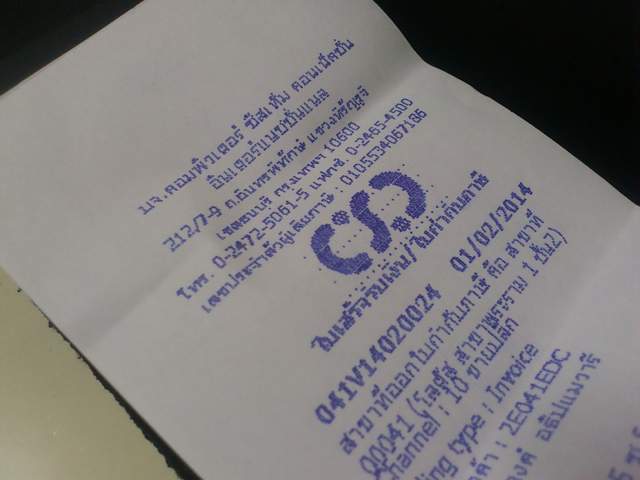 บจ.คอมพิวเตอร์ ซิสเท็ม คอนเน็คชั่น
อินเตอร์เนชั่นแนล
212/7-9 ถ.อินทรพิทักษ์ แขวงหิรัญรูจี
เขตธนบุรี กรุงเทพฯ 10600
โทร. 0-2472-5061-5 แฟกซ์. 0-2465-4500
เลขประจำตัวผู้เสียภาษี : 0105534067186
ใบเสร็จรับเงิน/ใบกำกับภาษี
041V14020024 01/02/2014
สาขาที่ออกใบกำกับภาษี คือ สาขาที่
00041 (โลตัส สาขาพระราม 1 ชั้น2)
Channel : 10 ขายปลีก
ing type : Invoice
: 2E041EDC